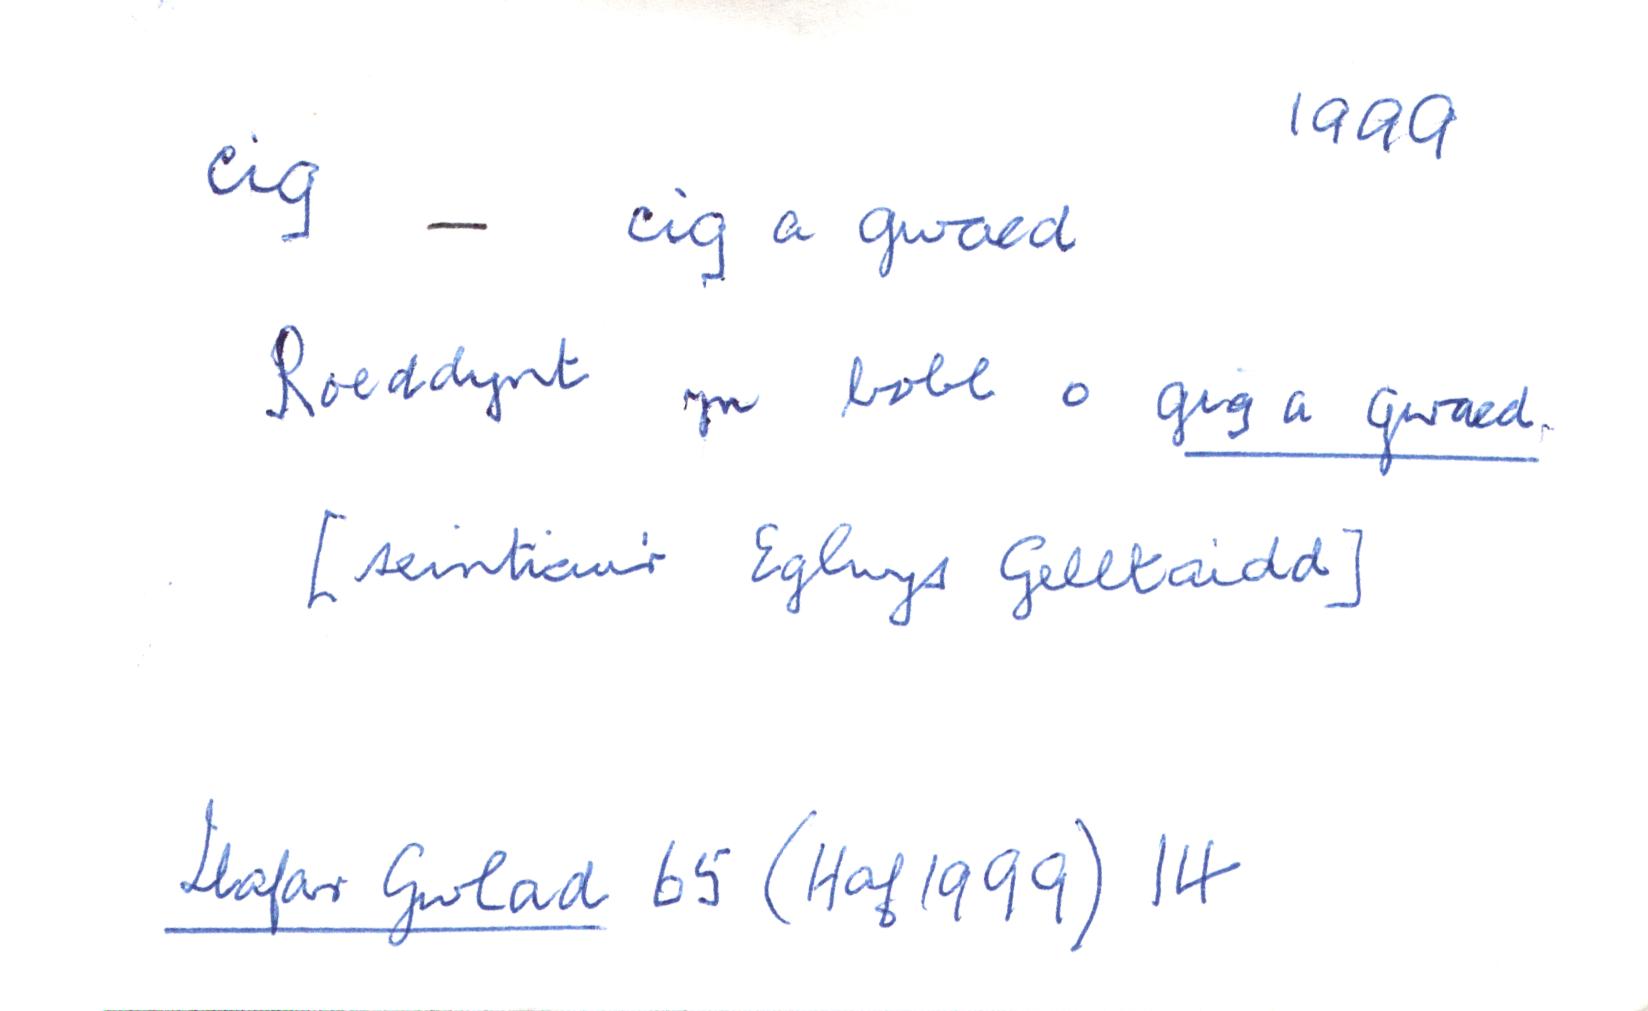 1999
cig – cig a gwaed
Roeddynt yn bobl o gig a gwaed.
[seintiau'r Eglwys Geltaidd]
Llafar Gwlad 65 (Haf 1999) 14